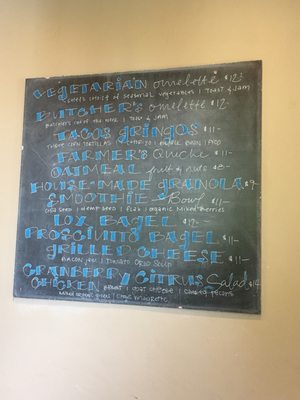 VEGETARIAN omelette $12-
seasonal vegetables | TOAST & JAM
BUTCHER'S omelette $12-
BUTCHER'S CUT OF THE WEEK | TOAST & JAM
TACOS GRINGOS $11-
THREE CORN TORTILLAS | CHORIZO | BLACK BEAN | PICO
FARMER'S Quiche $11-
OATMEAL fruit & nuts $8-
HOUSE-MADE GRANOLA $9
SMOOTHIE Bowl $11-
CHIA SEED | HEMP SEED | FLAX | ORGANIC MIXED BERRIES
LOX BAGEL $12-
PROSCIUTTO BAGEL $11-
GRILLED CHEESE $11-
BACON JAM | TOMATO ORZO SOUP
CRANBERRY CITRUS Salad $14
CHICKEN | GOAT CHEESE | CANDIED PECANS
MIXED greens | CITRUS VINAIGRETTE